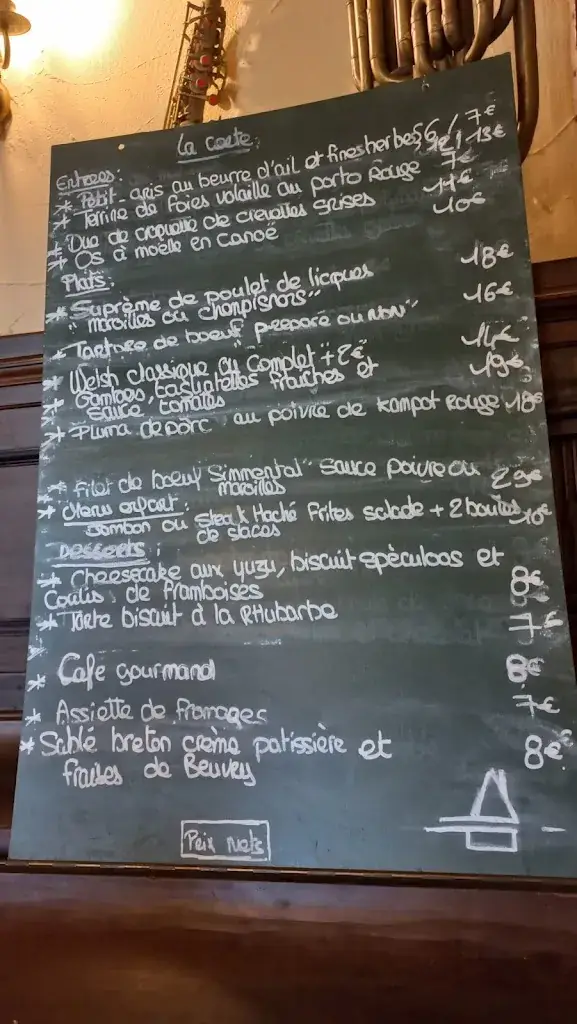 La carte:
Entrees:
* Petit-gris au beurre d'ail et fines herbes 6/7€ 12/13€
* Terrine de foies volaille au porto Rouge 7€
* Duo de croquette de crevettes grises 11€
* Os à moëlle en canoë 10€
Plats:
* Suprême de poulet de licques 18€
"maroilles ou champignons"
* Tartare de boeuf "préparé ou non" 16€
* Welsh classique ou Complet + 2€ 14€
* Gambas, tagliatelles fraîches et 19€
sauce tomates
* Pluma de porc au poivre de Kampot Rouge 18€
* Filet de boeuf "Simmental" sauce poivre ou 29€
maroilles
* Menu enfant:
Jambon ou steak Haché Frites salade + 2 boules 10€
de glaces
Desserts:
* Cheesecake aux yuzu, biscuit spéculoos et
Coulis de framboises 8€
* Tarte biscuit à la Rhubarbe 7€
* Café gourmand 8€
* Assiette de fromages 7€
* Sablé breton crème patissière et 8€
fraises de Beuvry
Prix nets